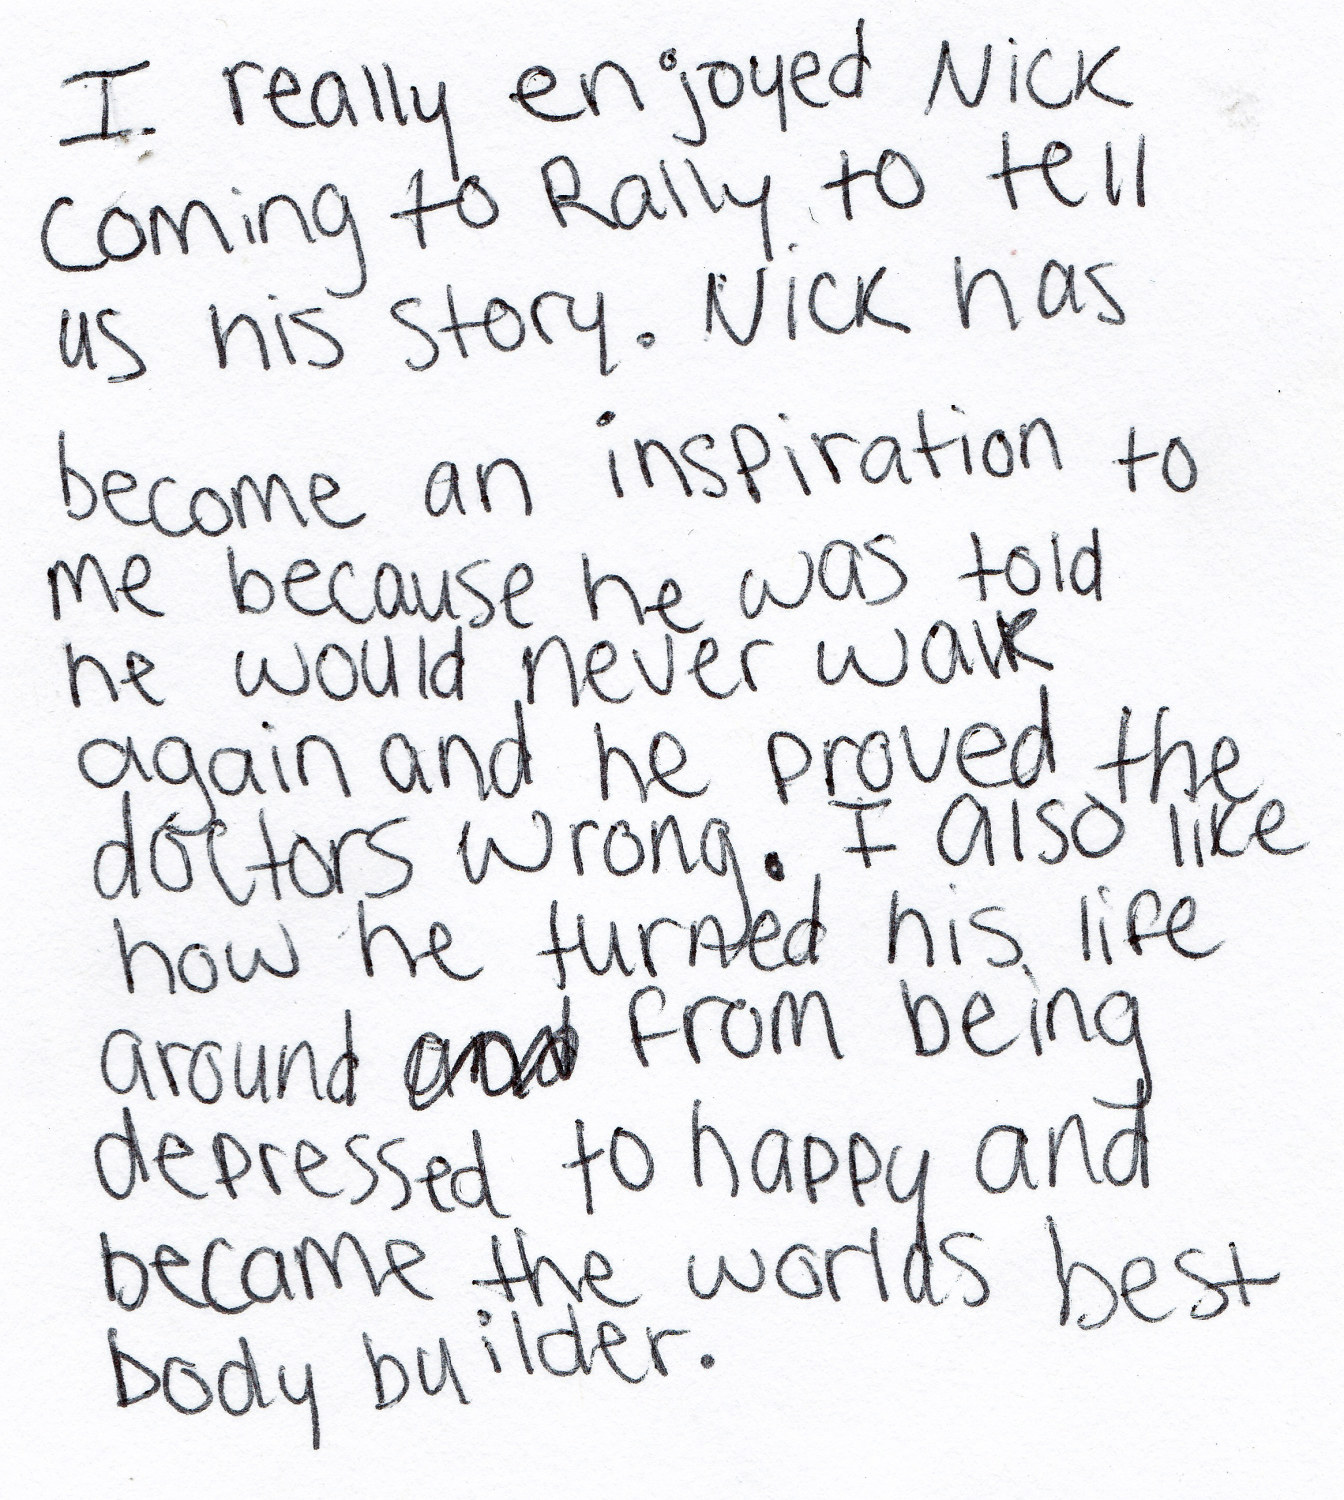 I really enjoyed Nick
coming to Rally to tell
us his story. Nick has
become an inspiration to
me because he was told
he would never walk
again and he proved the
doctors wrong. I also like
how he turned his life
around from being
depressed to happy and
became the worlds best
body builder.